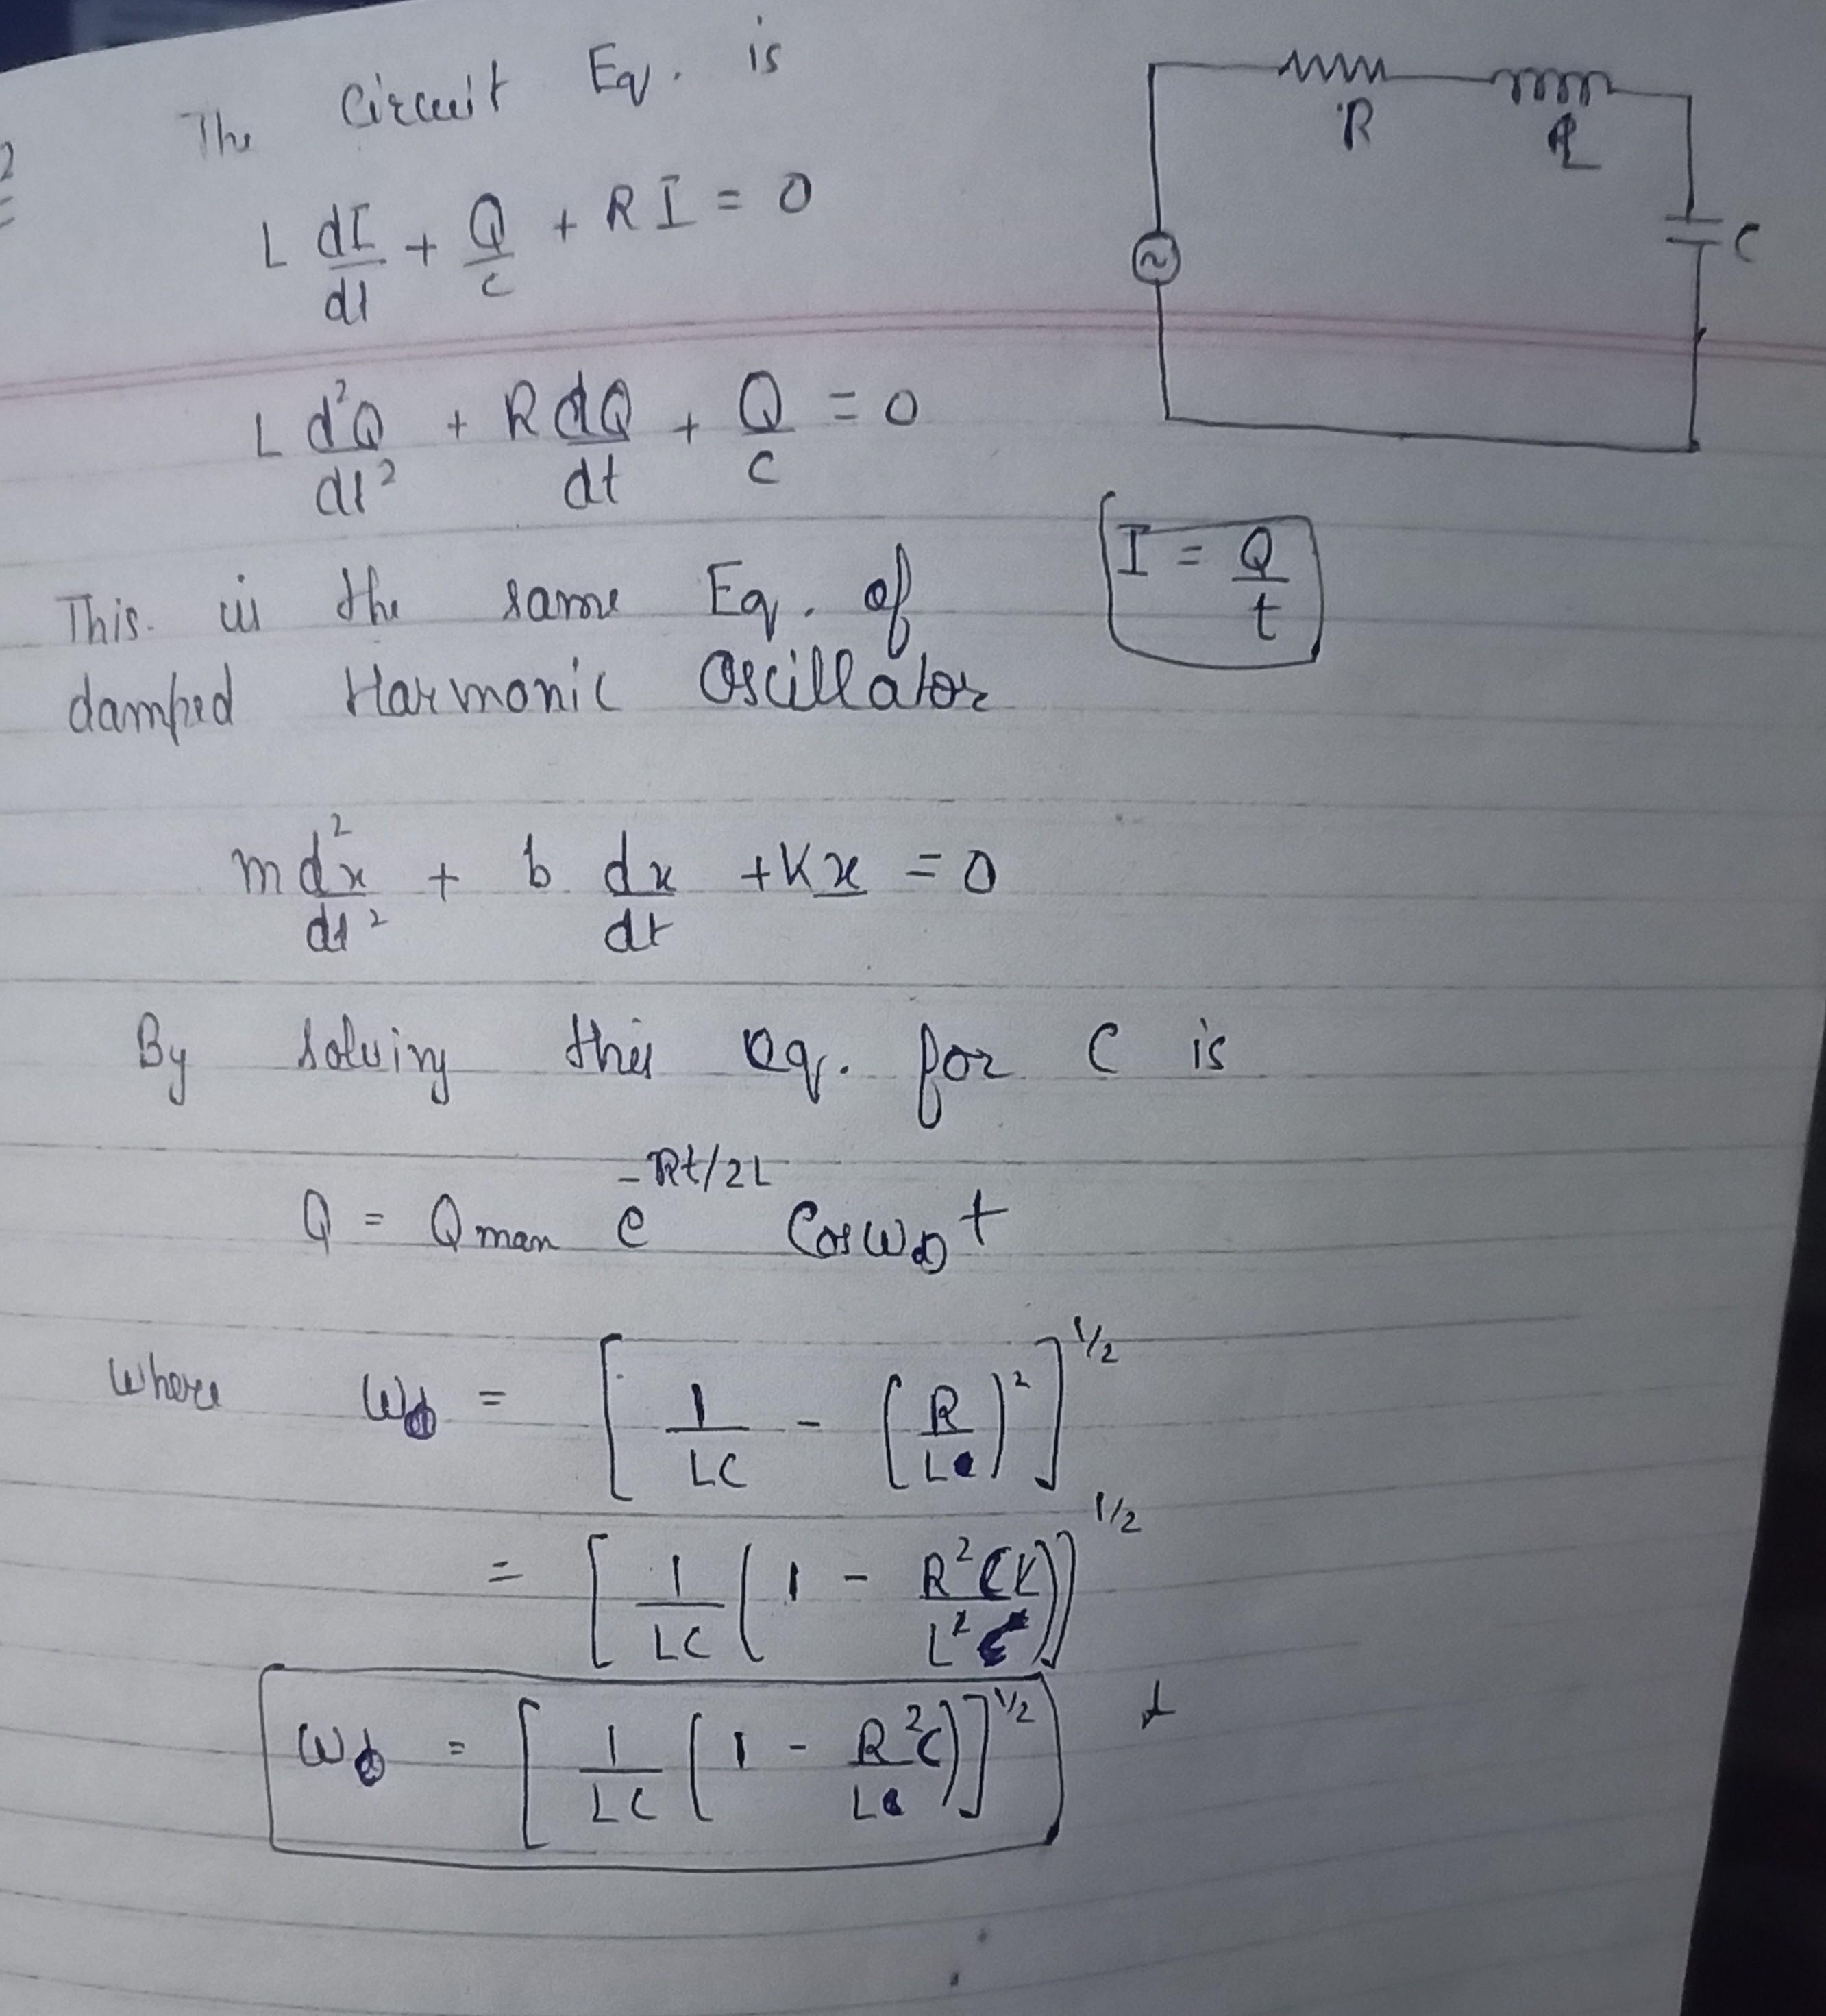 The Circuit Eq. is
L dI/dt + Q/c + RI = 0
R
L
C
~
L d²Q/dt² + R dQ/dt + Q/c = 0
I = Q/t
This is the same Eq. of
damped Harmonic Oscillator
m d²x/dt² + b dx/dt + Kx = 0
By solving this eq. for C is
Q = Qman e^-Rt/2L Cos ωd t
Where ωd = [1/LC - (R/L)²]^1/2
= [1/LC (1 - R²CL/L²)]^1/2
ωd = [1/LC (1 - R²C/L)]^1/2